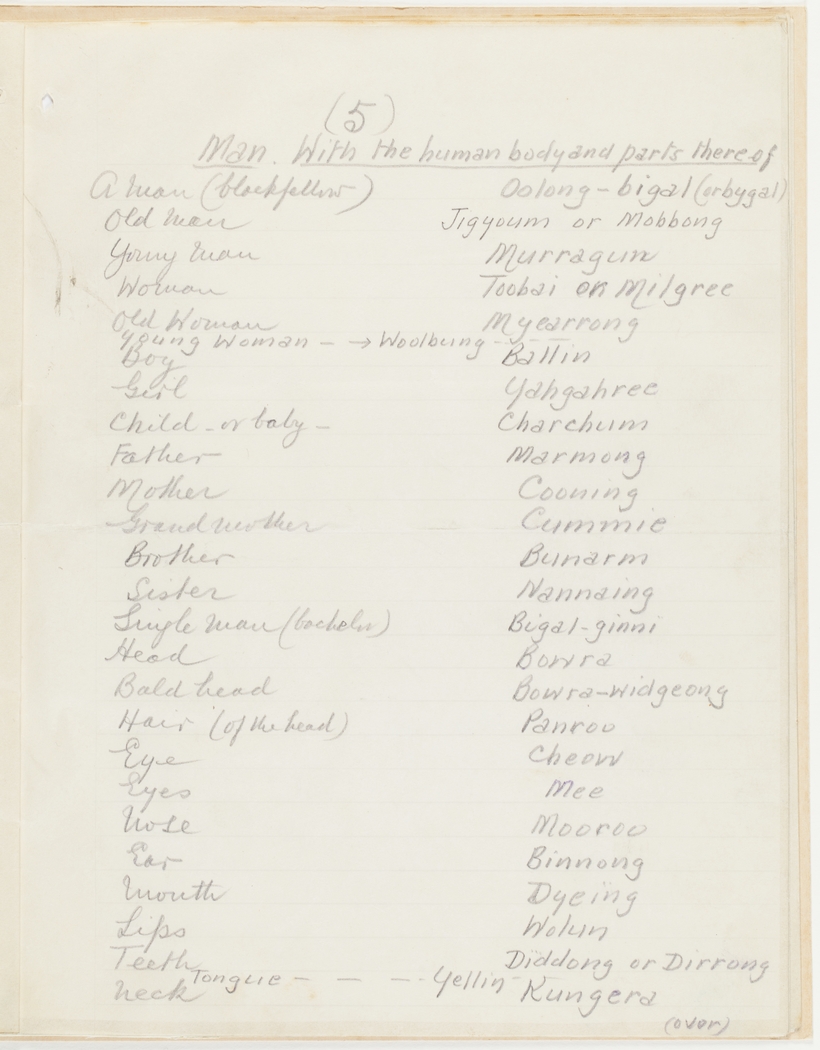 (5)
Man. With the human body and parts thereof
A man (blackfellow) Oolong-bigal (or bygal)
Old man Jigyoum or Mobbong
Young man Murragun
Woman Toobai or Milgree
Old Woman Myearrong
Young Woman - → Woolbung - - -
Boy Ballin
Girl Yahgahree
Child - or baby - Charchum
Father Marmong
Mother Cooning
Grandmother Cummie
Brother Bunarm
Sister Nannaing
Single man (bachelor) Bigal-ginni
Head Bowra
Bald head Bowra-widgeong
Hair (of the head) Panroo
Eye Cheow
Eyes Mee
Nose Mooroo
Ear Binnong
Mouth Dyeing
Lips Wolun
Teeth Diddong or Dirrong
Tongue - - - - Yellin -
Neck Kungera
(over)